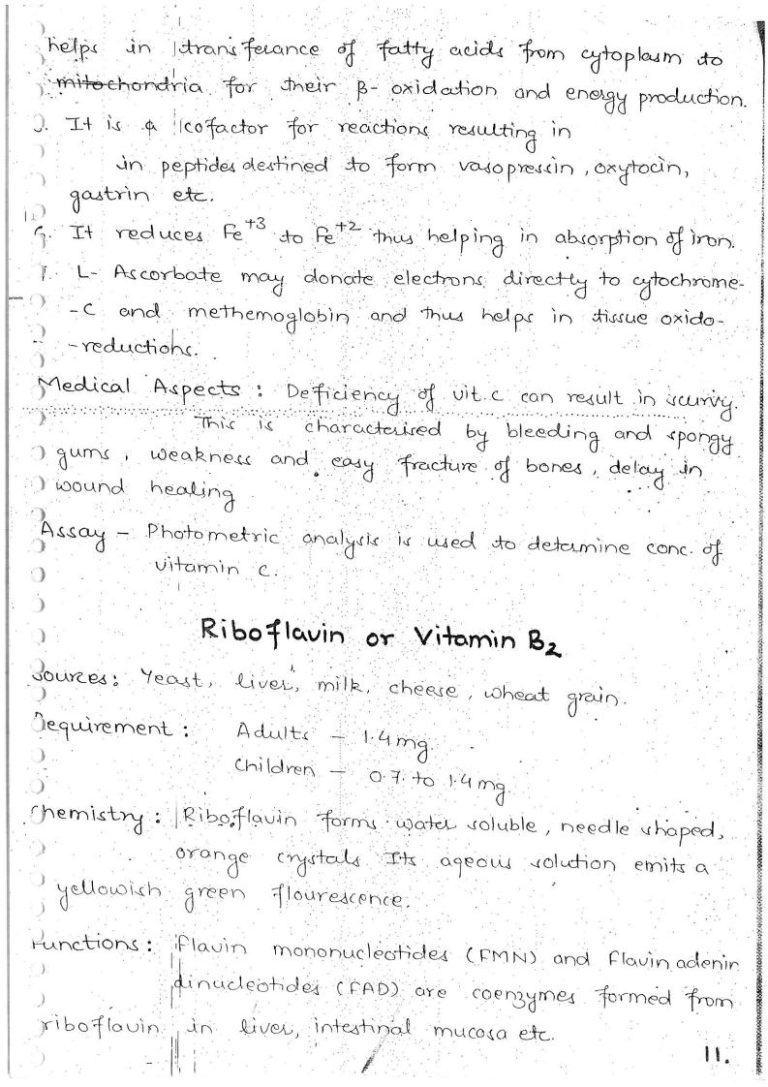 helps in transferance of fatty acids from cytoplasm to
mitochondria for their β- oxidation and energy production.
5. It is a cofactor for reactions resulting in
in peptides destined to form vasopressin, oxytocin,
gastrin etc.
6. It reduces Fe+3 to Fe+2 thus helping in absorption of iron.
7. L- Ascorbate may donate electrons directly to cytochrome-
-C and methemoglobin and thus helps in tissue oxido-
-reductions.
Medical Aspects : Deficiency of vit. C can result in scurvy.
This is characterised by bleeding and spongy
gums, weakness and easy fracture of bones, delay in
wound healing
Assay - Photometric analysis is used to determine conc. of
vitamin C.
Riboflavin or Vitamin B2
Sources: Yeast, liver, milk, cheese, wheat grain.
Requirement : Adults - 1.4 mg.
Children - 0.7 to 1.4 mg
Chemistry : Riboflavin forms water soluble, needle shaped,
orange crystals Its aqeous solution emits a
yellowish green flourescence.
Functions : Flavin mononucleotides (FMN) and Flavin adenin
dinucleotides (FAD) are coenzymes formed from
riboflavin in liver, intestinal mucosa etc.
11.